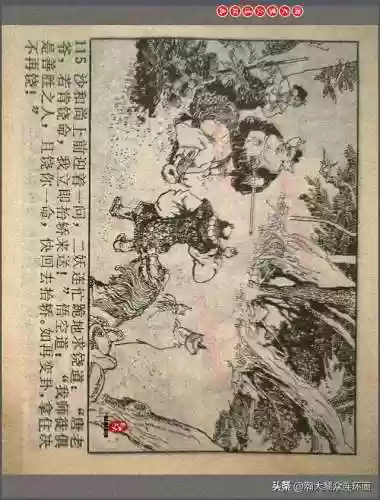 115 沙和尚上前迎着一问,二妖连忙跪地求饶道:“唐老
爷,若肯饶命,我立即抬轿来送!”悟空道:“我师徒俱
是善胜之人,且饶你一命,快回去抬轿。如再变卦,拿住决
不再饶!”
头条 @瀚大魁众连环画